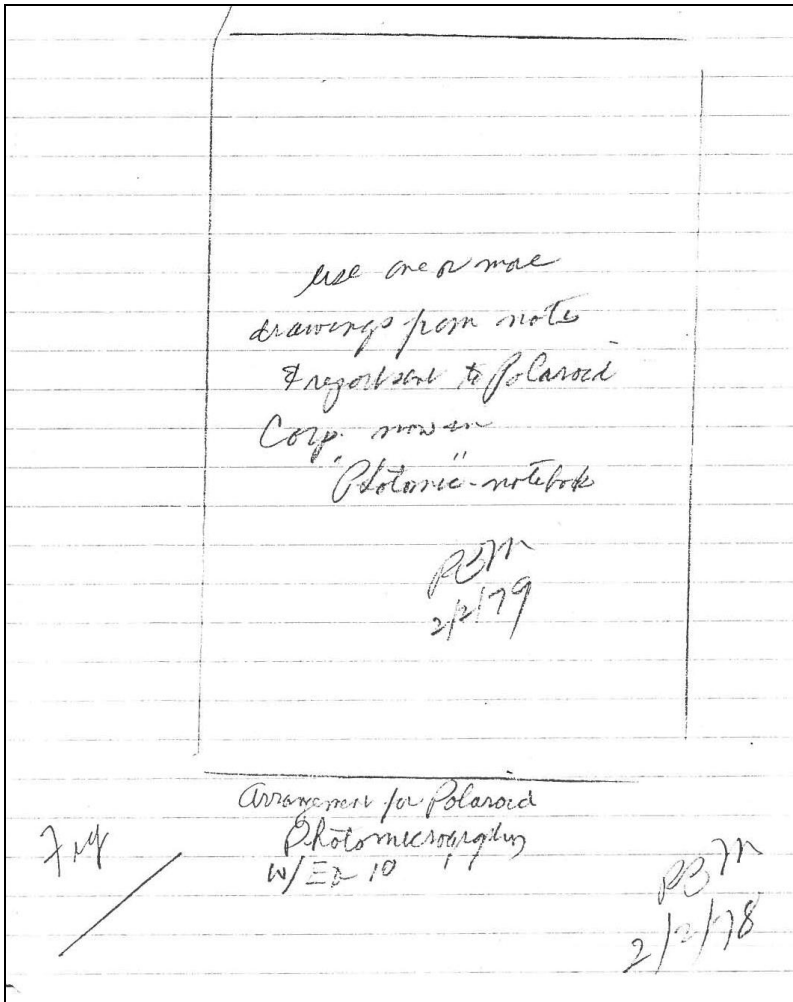 use one or more
drawings from notes
& report sent to Polaroid
Corp. now in
"Photomic" - notebook
PBM
2/2/79
Arrangement for Polaroid
Photomicrography
W/ 10
Fig
PBM
2/2/78